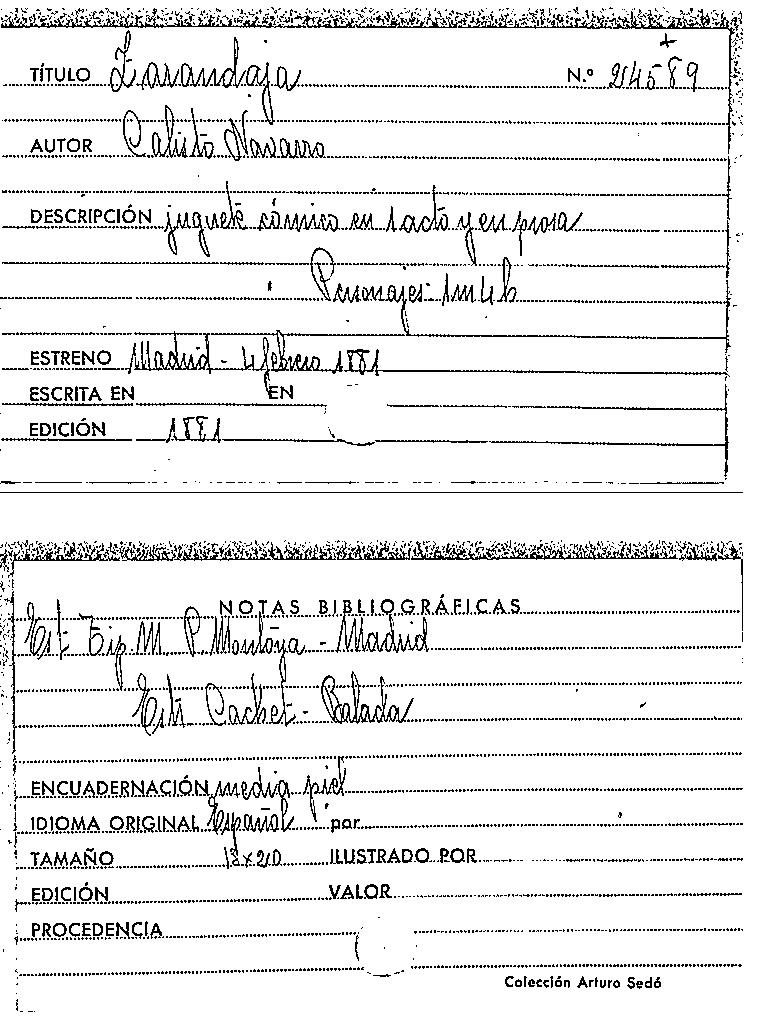 TÍTULO Zarandaja N.º 24589
AUTOR Calisto Navarro
DESCRIPCIÓN juguete cómico en 1 acto y en prosa
Personajes: 1m 4h
ESTRENO Madrid - 4 febrero 1881
ESCRITA EN EN
EDICIÓN 1881
NOTAS BIBLIOGRÁFICAS
Est. Tip. M. P. Montoya - Madrid
Est: Cachet - Balada
ENCUADERNACIÓN media piel
IDIOMA ORIGINAL Español por
TAMAÑO 13x20 ILUSTRADO POR
EDICIÓN VALOR
PROCEDENCIA
Colección Arturo Sedó